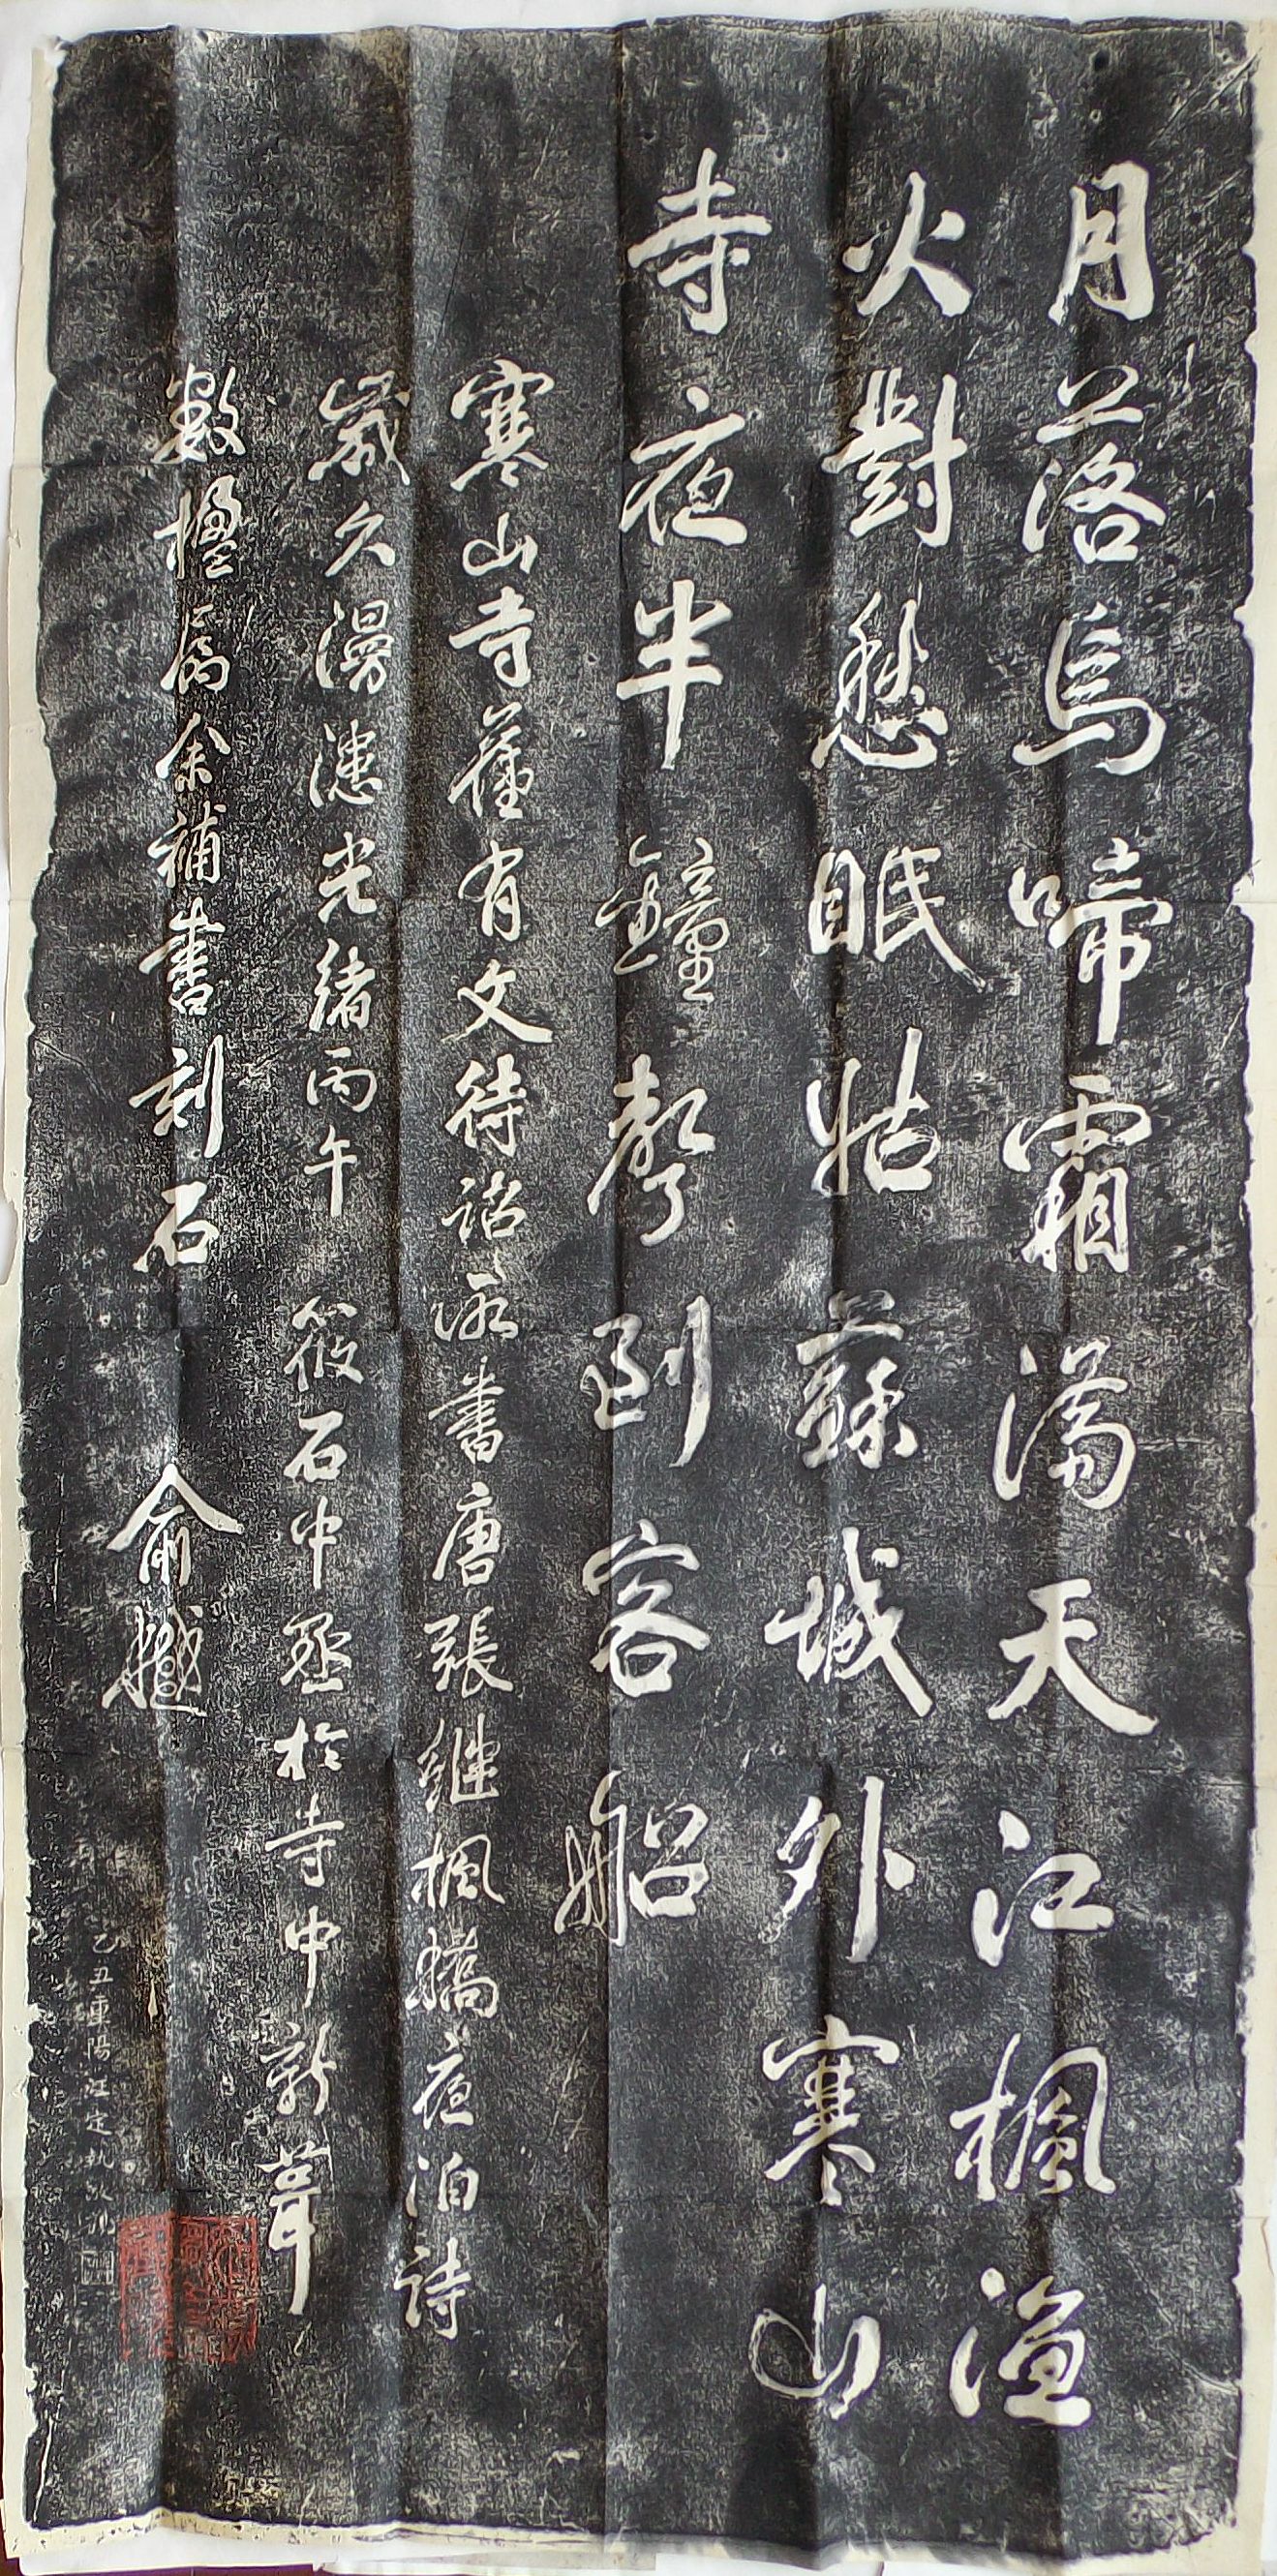 月落烏啼霜滿天江楓漁
火對愁眠姑蘇城外寒山
寺夜半鐘聲到客船
寒山寺舊有文待詔所書唐張繼楓橋夜泊詩
歲久漫漶光緒丙午筱石中丞於寺中新葺
數楹屬余補書刻石俞樾
乙丑重陽江定